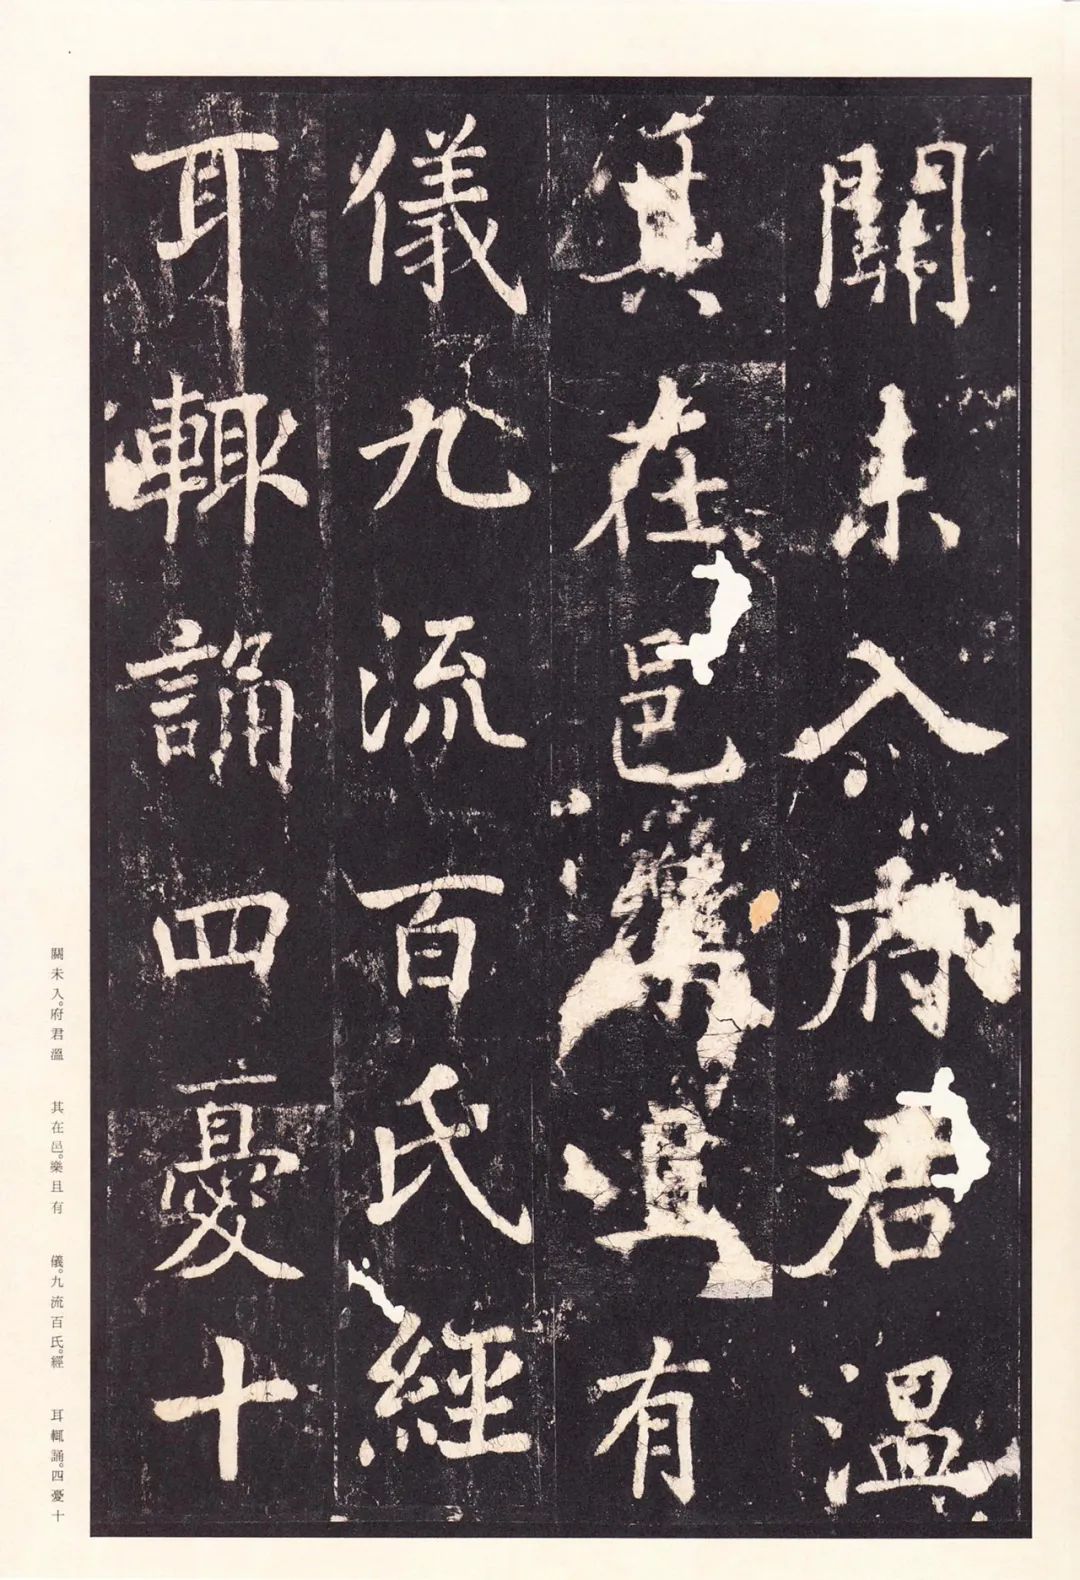 關未入府君溫
其在邑樂且有
儀九流百氏經
耳輒誦四憂十
關未入。府君溫 其在邑。樂且有 儀。九流百氏。經 耳輒誦。四憂十